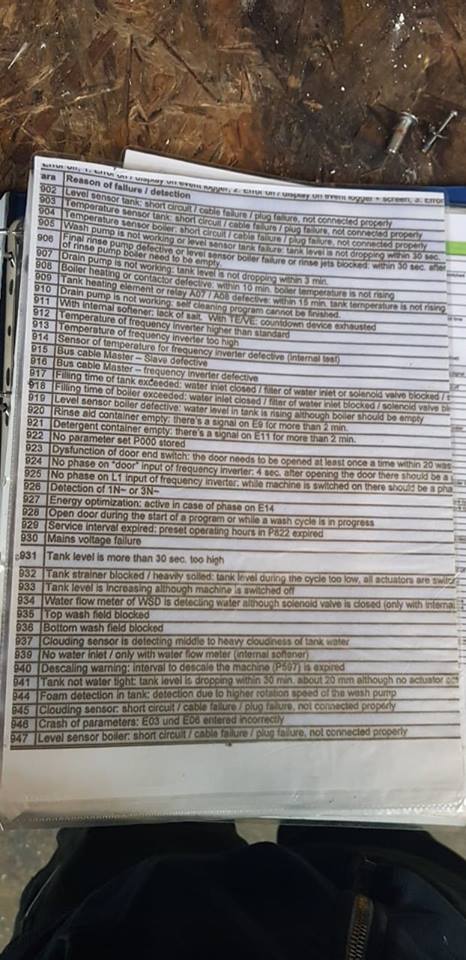 Error off, 1. Error on / display on event logger, 2. Error on / display on event logger + screen, 3. Error
ara Reason of failure / detection
902 Level sensor tank: short circuit / cable failure / plug failure, not connected properly
903 Temperature sensor tank: short circuit / cable failure / plug failure, not connected properly
904 Temperature sensor boiler: short circuit / cable failure / plug failure, not connected properly
905 Wash pump is not working or level sensor tank failure: tank level is not dropping within 30 sec.
906 Final rinse pump defective or level sensor boiler failure or rinse jets blocked: within 30 sec. after
of rinse pump boiler need to be empty.
907 Drain pump is not working: tank level is not dropping within 3 min.
908 Boiler heating or contactor defective: within 10 min. boiler temperature is not rising
909 Tank heating element or relay A07 / A08 defective: within 15 min. tank temperature is not rising
910 Drain pump is not working; self cleaning program cannot be finished.
911 With internal softener: lack of salt. With TE/VE: countdown device exhausted
912 Temperature of frequency inverter higher than standard
913 Temperature of frequency inverter too high
914 Sensor of temperature for frequency inverter defective (internal test)
915 Bus cable Master – Slave defective
916 Bus cable Master – frequency inverter defective
917 Filling time of tank exceeded: water inlet closed / filter of water inlet or solenoid valve blocked /
918 Filling time of boiler exceeded: water inlet closed / filter of water inlet blocked / solenoid valve bl
919 Level sensor boiler defective: water level in tank is rising although boiler should be empty
920 Rinse aid container empty: there's a signal on E9 for more than 2 min.
921 Detergent container empty: there's a signal on E11 for more than 2 min.
922 No parameter set P000 stored
923 Dysfunction of door end switch: the door needs to be opened at least once a time within 20 was
924 No phase on "door" input of frequency inverter: 4 sec. after opening the door there should be a
925 No phase on L1 input of frequency inverter: while machine is switched on there should be a pha
926 Detection of 1N~ or 3N~
927 Energy optimization: active in case of phase on E14
928 Open door during the start of a program or while a wash cycle is in progress
929 Service interval expired: preset operating hours in P822 expired
930 Mains voltage failure
931 Tank level is more than 30 sec. too high
932 Tank strainer blocked / heavily soiled: tank level during the cycle too low, all actuators are switc
933 Tank level is increasing although machine is switched off
934 Water flow meter of WSD is detecting water although solenoid valve is closed (only with internal
935 Top wash field blocked
936 Bottom wash field blocked
937 Clouding sensor is detecting middle to heavy cloudiness of tank water
939 No water inlet / only with water flow meter (internal softener)
940 Descaling warning: interval to descale the machine (P597) is expired
941 Tank not water tight: tank level is dropping within 30 min. about 20 mm although no actuator act
944 Foam detection in tank: detection due to higher rotation speed of the wash pump
945 Clouding sensor: short circuit / cable failure / plug failure, not connected properly
946 Crash of parameters: E03 und E06 entered incorrectly
947 Level sensor boiler: short circuit / cable failure / plug failure, not connected properly